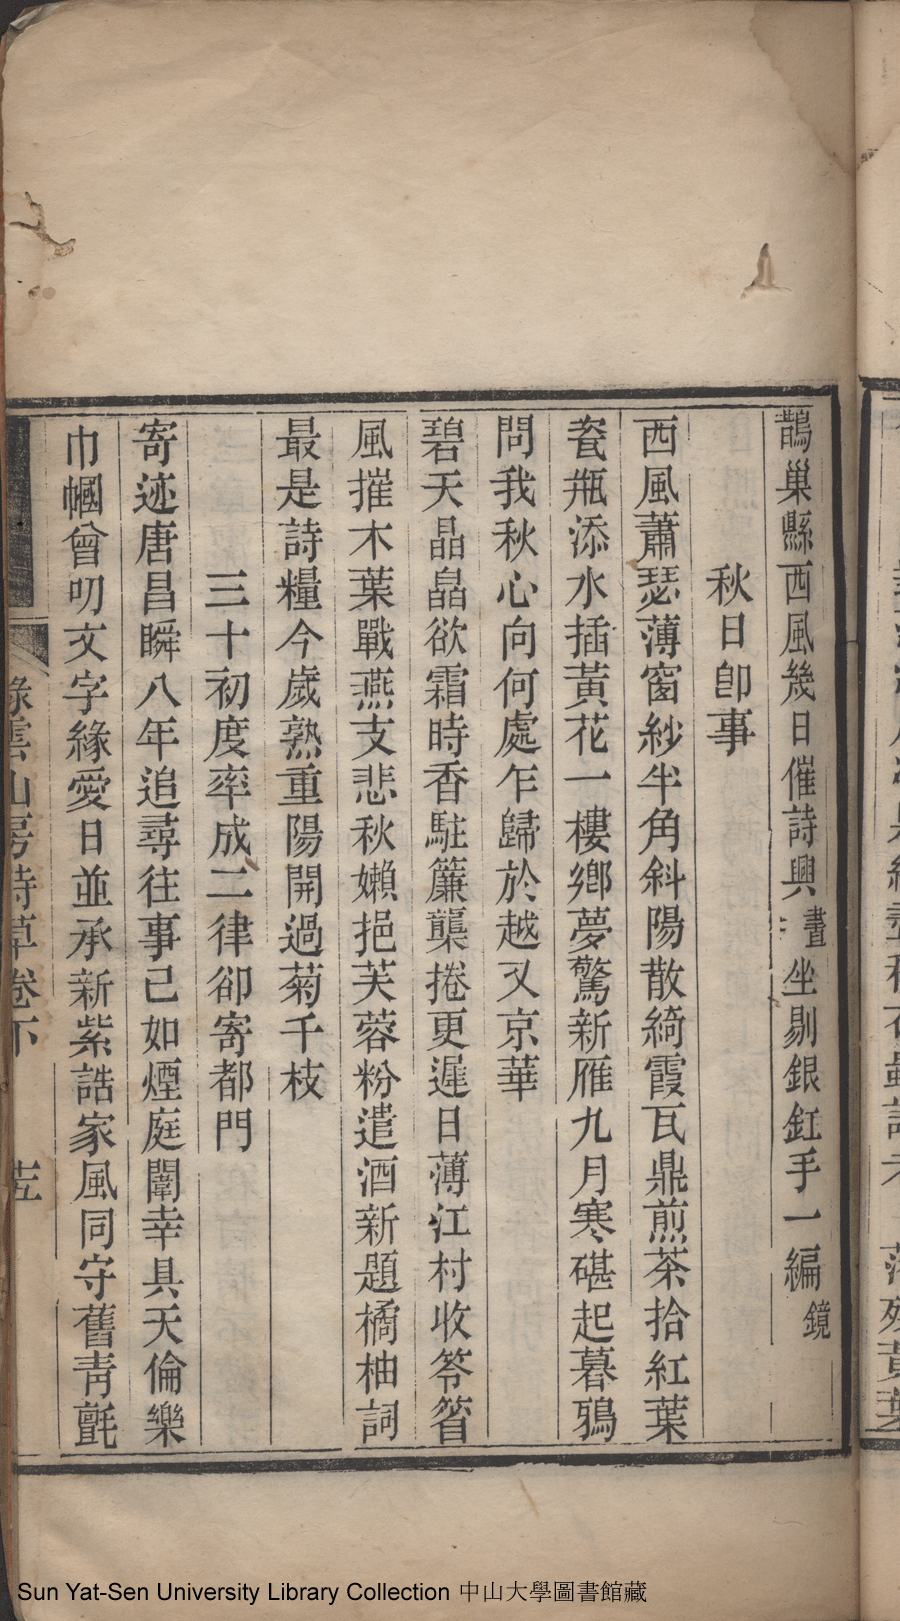 鵲巢縣西風幾日催詩興晝坐剔銀釭手一編鏡
秋日卽事
西風蕭瑟薄窗紗半角斜陽散綺霞瓦鼎煎茶拾紅葉
瓷瓶添水插黃花一樓鄉夢驚新雁九月寒碪起暮鴉
問我秋心向何處乍歸於越又京華
碧天晶皛欲霜時香駐簾櫳捲更遲日薄江村收笭箵
風摧木葉戰燕支悲秋嬾挹芙蓉粉遣酒新題橘柚詞
最是詩糧今歲熟重陽開過菊千枝
三十初度率成二律卻寄都門
寄迹唐昌瞬八年追尋往事已如煙庭闈幸具天倫樂
巾幗曾叨文字緣愛日並承新紫誥家風同守舊青氈
綠雲山房詩草卷下
Sun Yat-Sen University Library Collection 中山大學圖書館藏